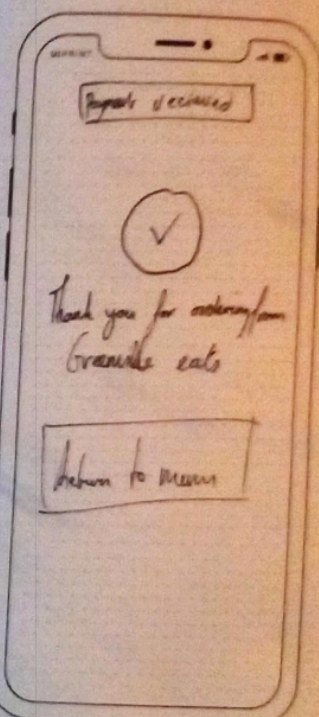 Payment recieved
Thank you for ordering from
Granville eats
Return to menu